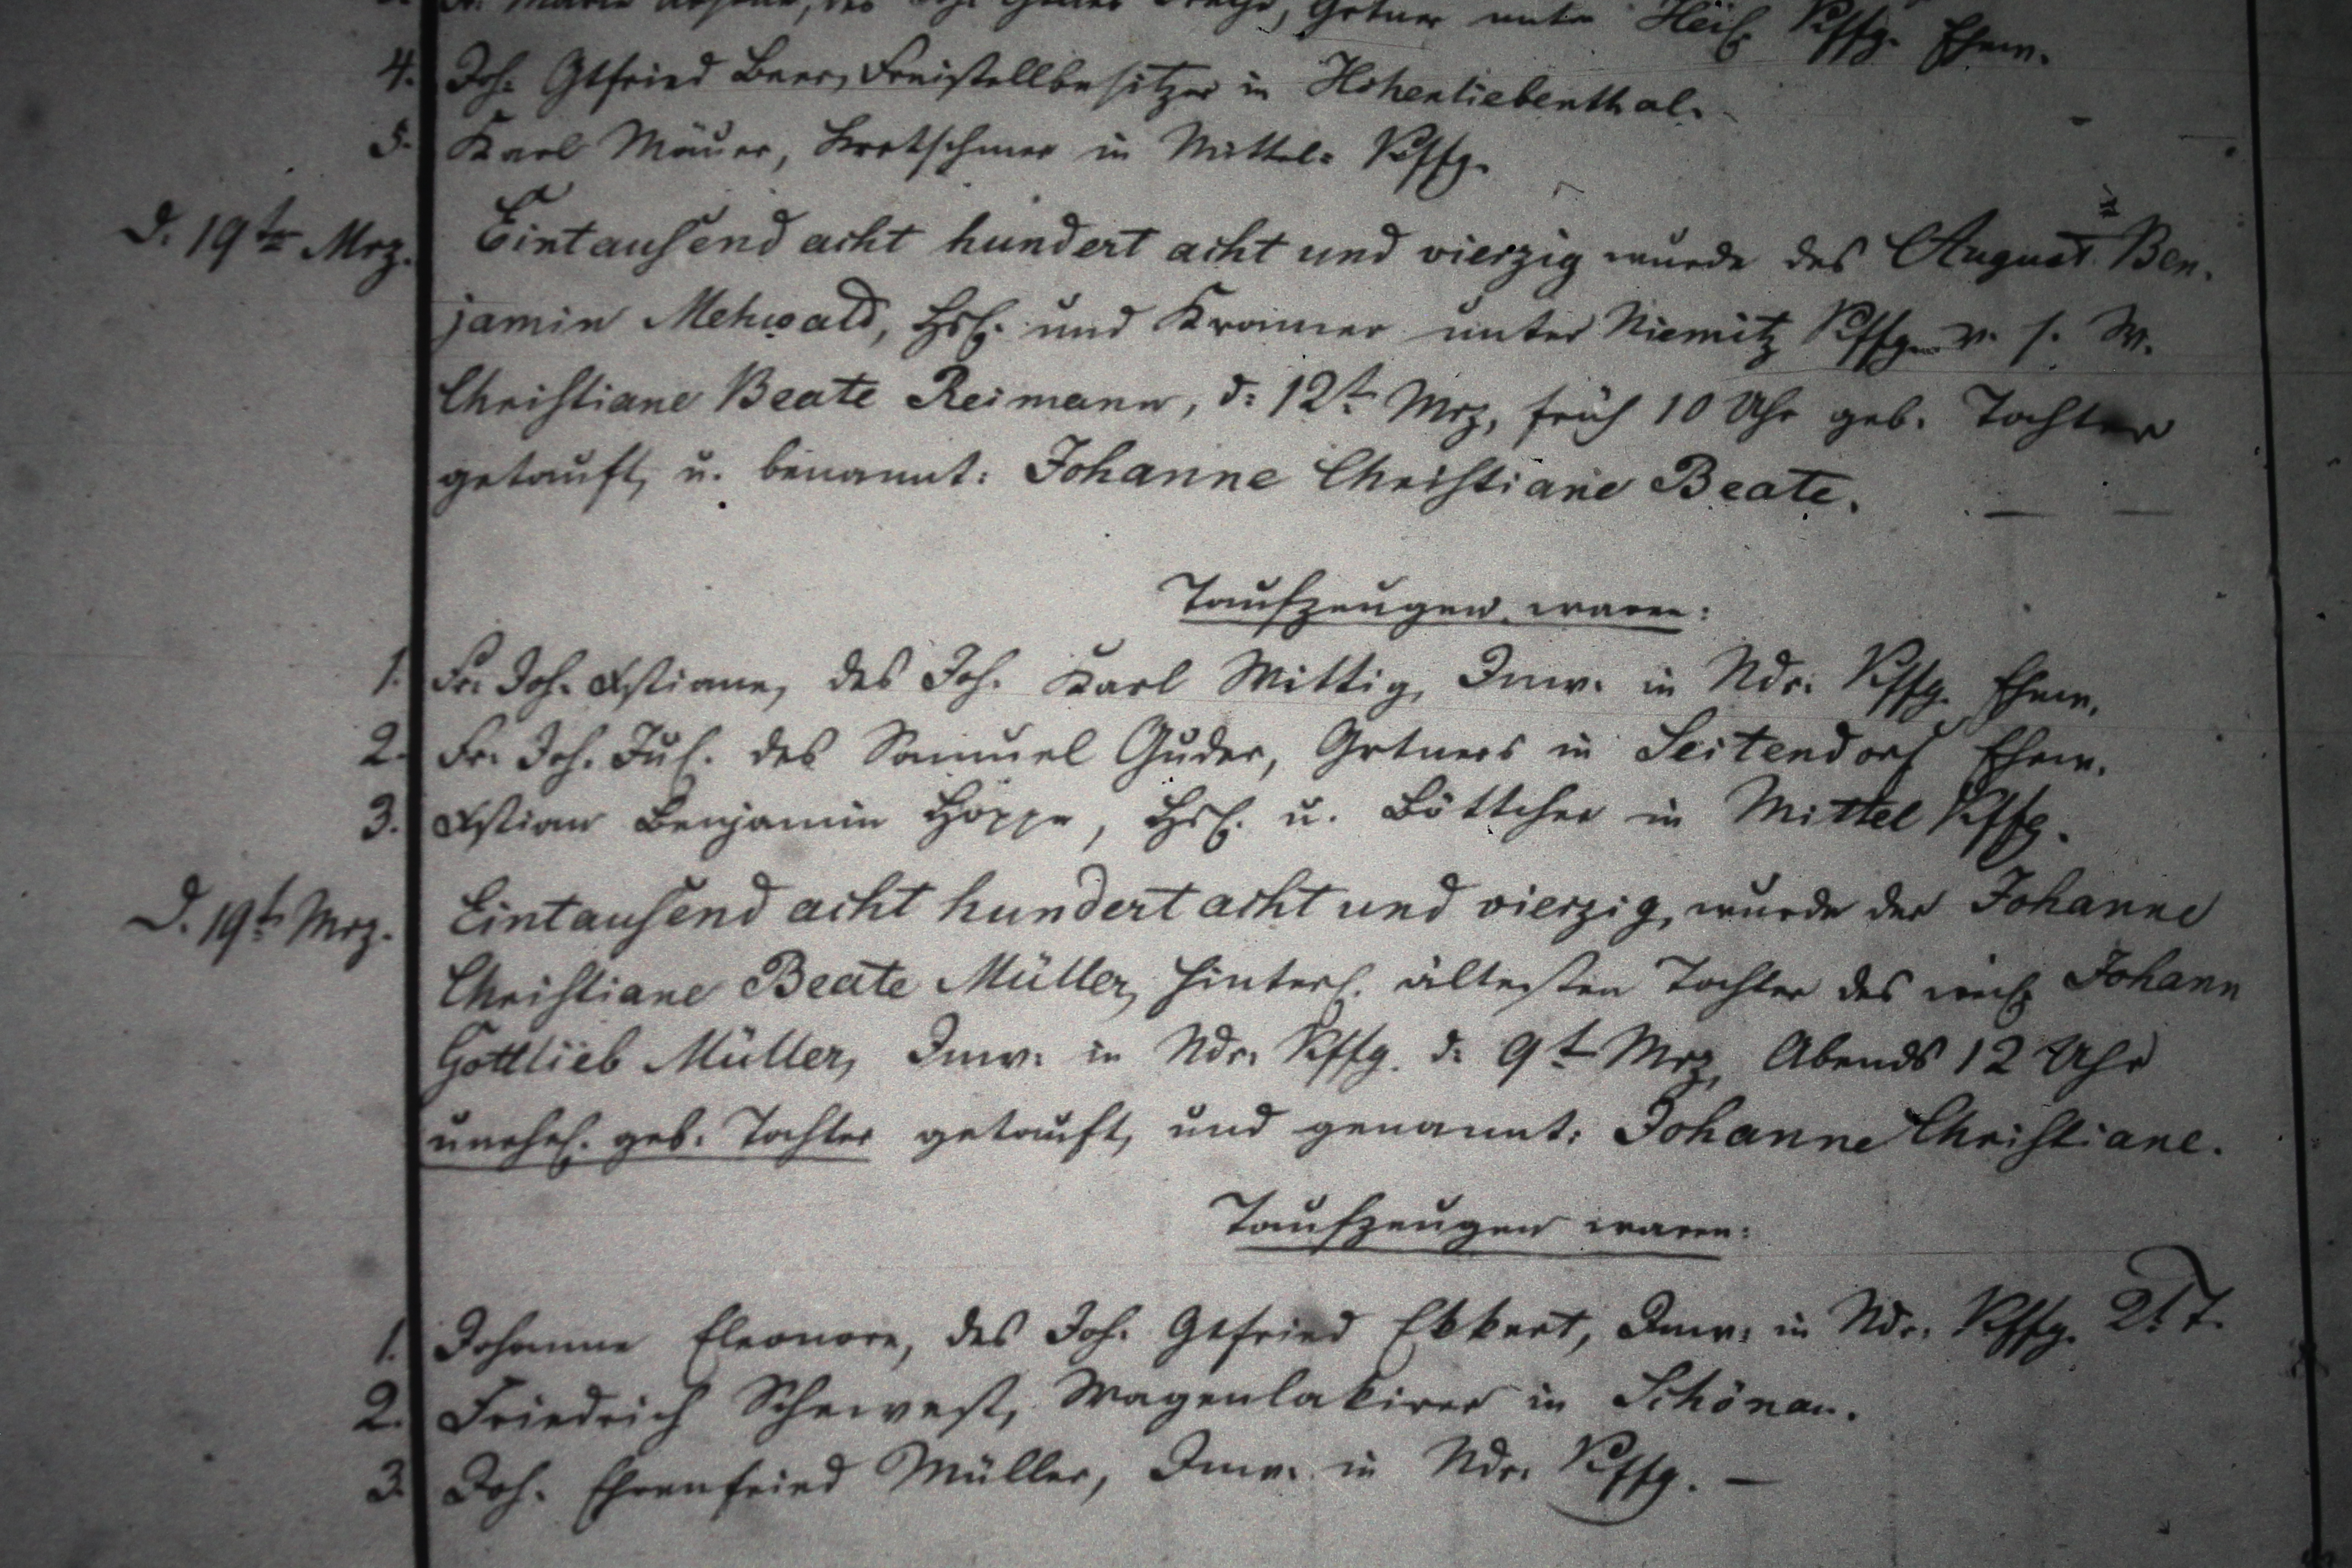 Gottl. Grtner unter Heil. Kffg. Ehew.
4. Joh. Gtfried Beer, Freistellbesitzer in Hohenliebenthal.
5. Karl Mäuer, Kretschmer in Mittel= Kffg.
d. 19te Mrz. Eintausend acht hundert acht und vierzig wurde des August Ben-
jamin Mehwald, Hsl. und Kramer unter Niemitz Kffg. v. s. W.
Christiane Beate Reimann, d: 12t. Mrz, früh 10 Uhr geb. Tochter
getauft, u. benannt: Johanne Christiane Beate. — —
Taufzeugen waren:
1. Fr. Joh. Xstiane, des Joh. Karl Wittig, Inw. in Ndr. Kffg. Ehew.
2. Fr. Joh. Jul. des Samuel Guder, Grtners in Seitendorf Ehew.
3. Xstian Benjamin Hoppe, Hsl. u. Böttcher in Mittel Kffg.
d. 19t. Mrz. Eintausend acht hundert acht und vierzig, wurde der Johanne
Christiane Beate Müller, hinterl. ältesten Tochter des weil. Johann
Gottlieb Müller, Inw. in Ndr. Kffg. d: 9t. Mrz, Abends 12 Uhr
unehel. geb. Tochter getauft, und genannt: Johanne Christiane.
Taufzeugen waren:
1. Johanne Eleonore, des Joh. Gtfried Ekkert, Inw. in Ndr. Kffg. 2t. T.
2. Friedrich Wagenlakirer in Schönau.
3. Joh. Ehrenfried Müller, Inw. in Ndr. Kffg. —